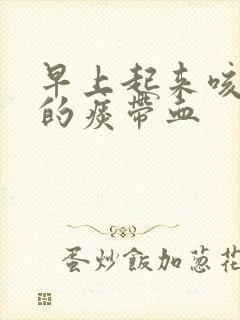 早上起来咳
的痰带血
蛋炒飯加葱花